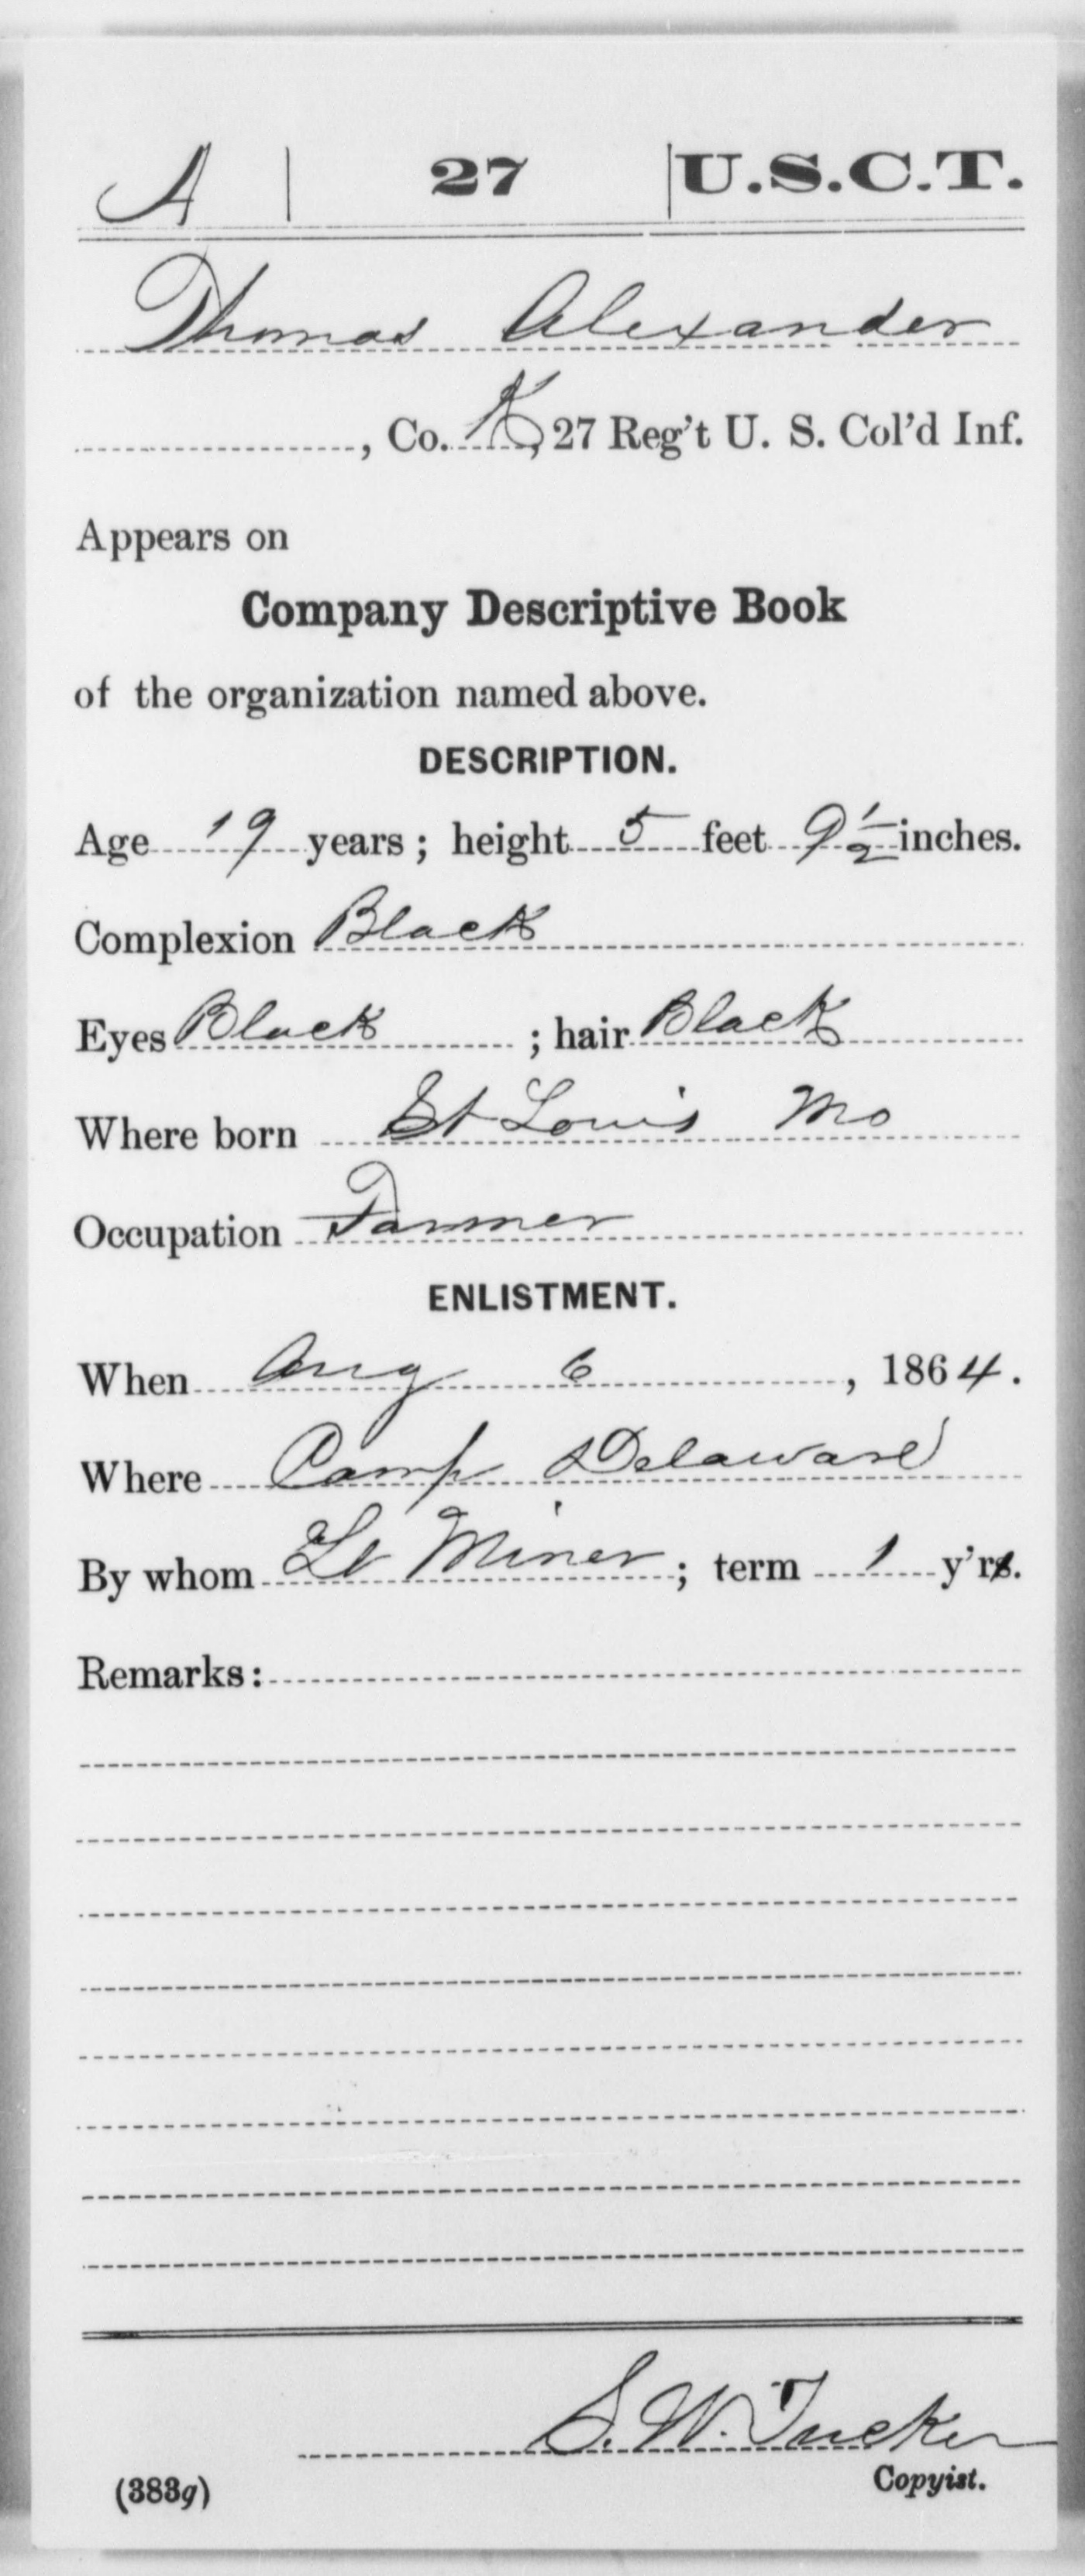 A | 27 | U.S.C.T.
Thomas Alexander
, Co. K, 27 Reg't U. S. Col'd Inf.
Appears on
Company Descriptive Book
of the organization named above.
DESCRIPTION.
Age 19 years; height 5 feet 9 1/2 inches.
Complexion Black
Eyes Black ; hair Black
Where born St Louis Mo
Occupation Farmer
ENLISTMENT.
When Aug 6 , 1864.
Where Camp Delaware
By whom Lt Miner ; term 1 y'rs.
Remarks:
S. W. Tucker
Copyist.
(383g)